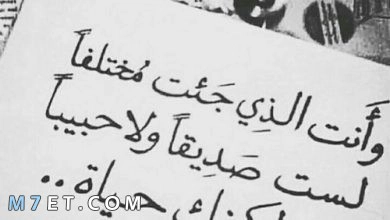 وَأَنت الذِي جَئت مُختلفاً
لست صَدِيقاً ولا حبيباً
لكنك حياة ..
M7ET.COM